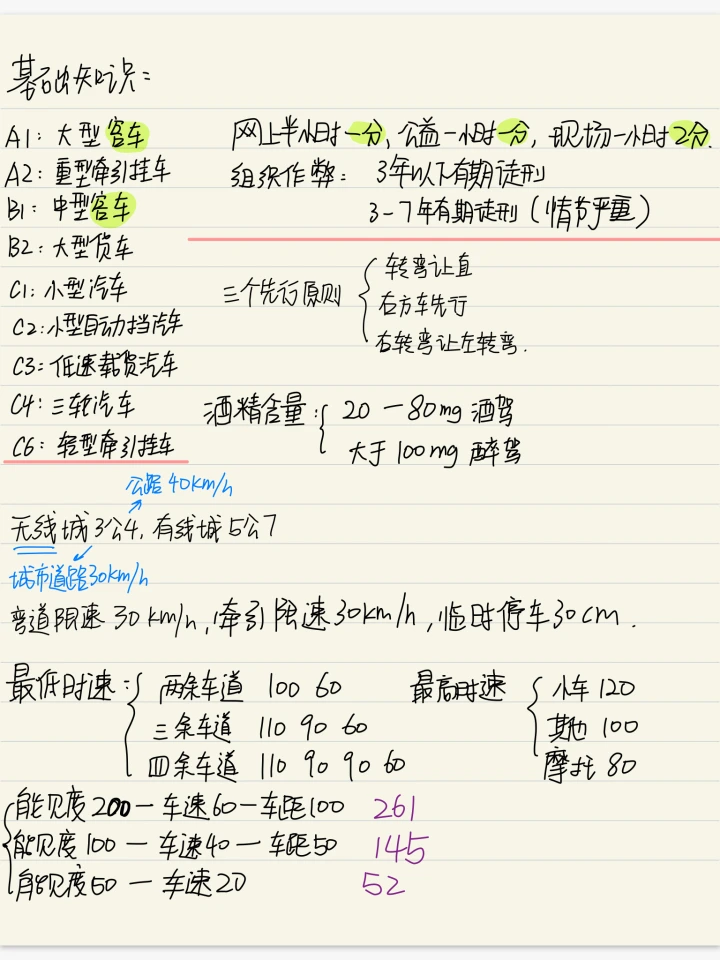 基础知识:
A1: 大型客车
A2: 重型牵引挂车
B1: 中型客车
B2: 大型货车
C1: 小型汽车
C2: 小型自动挡汽车
C3: 低速载货汽车
C4: 三轮汽车
C6: 轻型牵引挂车
网上半小时一分, 公益一小时一分, 现场一小时2分.
组织作弊: 3年以下有期徒刑
3-7年有期徒刑 (情节严重)
三个先行原则
转弯让直
右方车先行
右转弯让左转弯.
酒精含量:
20 — 80mg 酒驾
大于100mg 醉驾
公路 40km/h
无线城3公4, 有线城5公7
城市道路30km/h
弯道限速 30 km/h, 牵引限速30km/h, 临时停车30cm.
最低时速:
两条车道 100 60
三条车道 110 90 60
四条车道 110 90 90 60
最高时速
小车 120
其他 100
摩托 80
能见度200 — 车速60 — 车距100 261
能见度100 — 车速40 — 车距50 145
能见度50 — 车速20 52